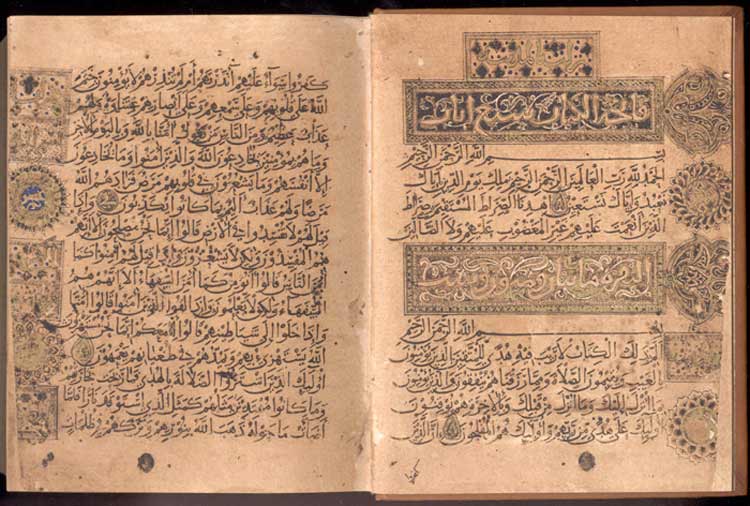 فاتحة الكتاب سبع ايات
بسم الله الرحمن الرحيم
الحمد لله رب العالمين الرحمن الرحيم ملك يوم الدين اياك
نعبد واياك نستعين اهدنا الصراط المستقيم صراط
الذين انعمت عليهم غير المغضوب عليهم ولا الضالين
البقرة مائتان وثمانون وست
بسم الله الرحمن الرحيم
الم ذلك الكتاب لا ريب فيه هدى للمتقين الذين يؤمنون
بالغيب ويقيمون الصلاة ومما رزقناهم ينفقون والذين يؤمنون
بما انزل اليك وما انزل من قبلك وبالاخرة هم يوقنون
اولئك على هدى من ربهم واولئك هم المفلحون ان الذين
كفروا
كفروا سواء عليهم أانذرتهم ام لم تنذرهم لا يؤمنون ختم
الله على قلوبهم وعلى سمعهم وعلى ابصارهم غشاوة ولهم
عذاب عظيم ومن الناس من يقول امنا بالله وباليوم الاخر
وما هم بمؤمنين يخادعون الله والذين امنوا وما يخادعون
الا انفسهم وما يشعرون في قلوبهم مرض فزادهم الله
مرضا ولهم عذاب اليم بما كانوا يكذبون واذا
قيل لهم لا تفسدوا في الارض قالوا انما نحن مصلحون الا انهم
هم المفسدون ولكن لا يشعرون واذا قيل لهم امنوا كما
امن الناس قالوا انؤمن كما امن السفهاء الا انهم هم
السفهاء ولكن لا يعلمون واذا لقوا الذين امنوا قالوا امنا
واذا خلوا الى شياطينهم قالوا انا معكم انما نحن مستهزؤن
الله يستهزئ بهم ويمدهم في طغيانهم يعمهون
اولئك الذين اشتروا الضلالة بالهدى فما ربحت تجارتهم
وما كانوا مهتدين مثلهم كمثل الذي استوقد نارا فلما
اضاءت ما حوله ذهب الله بنورهم وتركهم في ظلمات